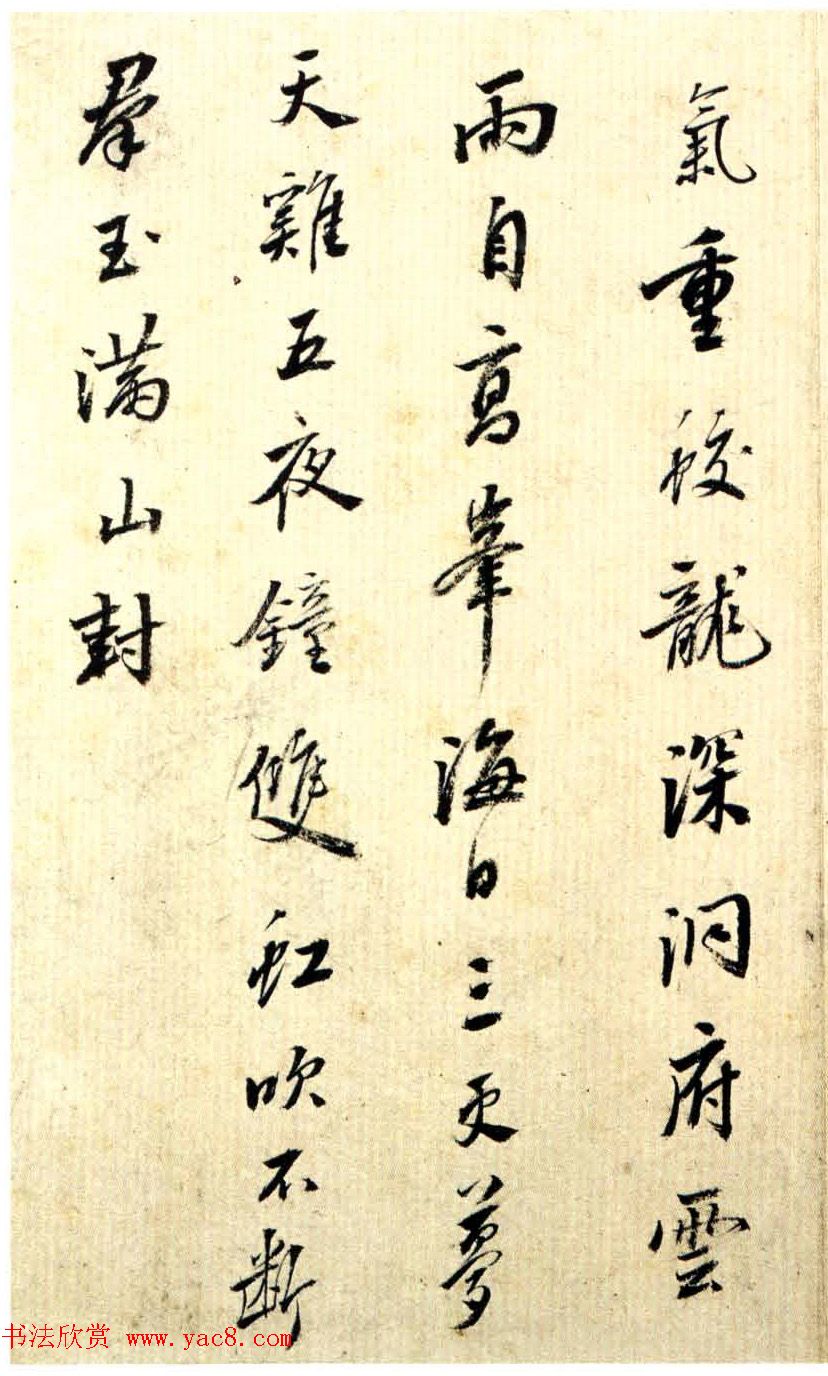 氣重蛟龍深洞府雲
雨自高峯海日三更夢
天雞五夜鐘雙虹吹不斷
羣玉滿山封
书法欣赏 www.yac8.com